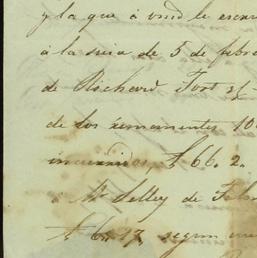 y la que á vmd le escri
á la suia de 5 de febre
de Richard Foot
de los remanentes 10
£ 66. 2.
á Mr Selley de
£ 60. 17 segun